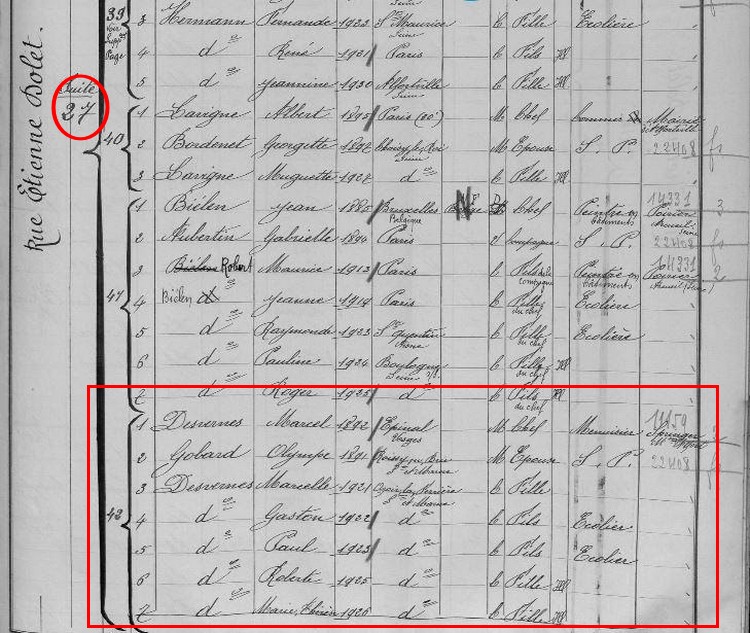 Rue Etienne Dolet.
Suite
27
39 voir supp Page
3 Hermann Fernande 1922 St Maurice Seine C Fille Ecolière
4 d° René 1921 Paris C Fils
5 d° Jeannine 1930 Alfortville Seine C Fille
40
1 Lavigne Albert 1895 Paris (20e) M Chef Commis Mairie
2 Bordenet Georgette 1897 Choisy le Roi Seine M Epouse S. P. 22408
3 Lavigne Muguette 1927 d° C Fille
41
1 Bielen Jean 1885 Bruxelles Belgique Belge N F D Chef Peintre en bâtiments 14331 3
2 Aubertin Gabrielle 1894 Paris compagne S. P. 22408
3 Bielen Robert Maurice 1913 Paris C Fils de la compagne Peintre en bâtiments 14331 2
4 Bielen Jeanne 1919 Paris C Fille du chef Ecolière
5 d° Raymonde 1923 St Quentin Aisne C Fille du chef Ecolière
6 d° Pauline 1924 Boulogne Seine C Fille du chef
7 d° Roger 1925 d° C Fils du chef
42
1 Desvernes Marcel 1892 Epinal Vosges M Chef Menuisier 11159
2 Gobard Olympe 1891 Roissy en Brie Sne et Marne M Epouse S. P. 22408
3 Desvernes Marcelle 1921 Ozoir la Ferrière Sne et Marne C Fille
4 d° Gaston 1922 d° C Fils Ecolier
5 d° Paul 1923 d° C Fils Ecolier
6 d° Roberte 1925 d° C Fille
7 d° Marie, Thérèse 1926 d° C Fille